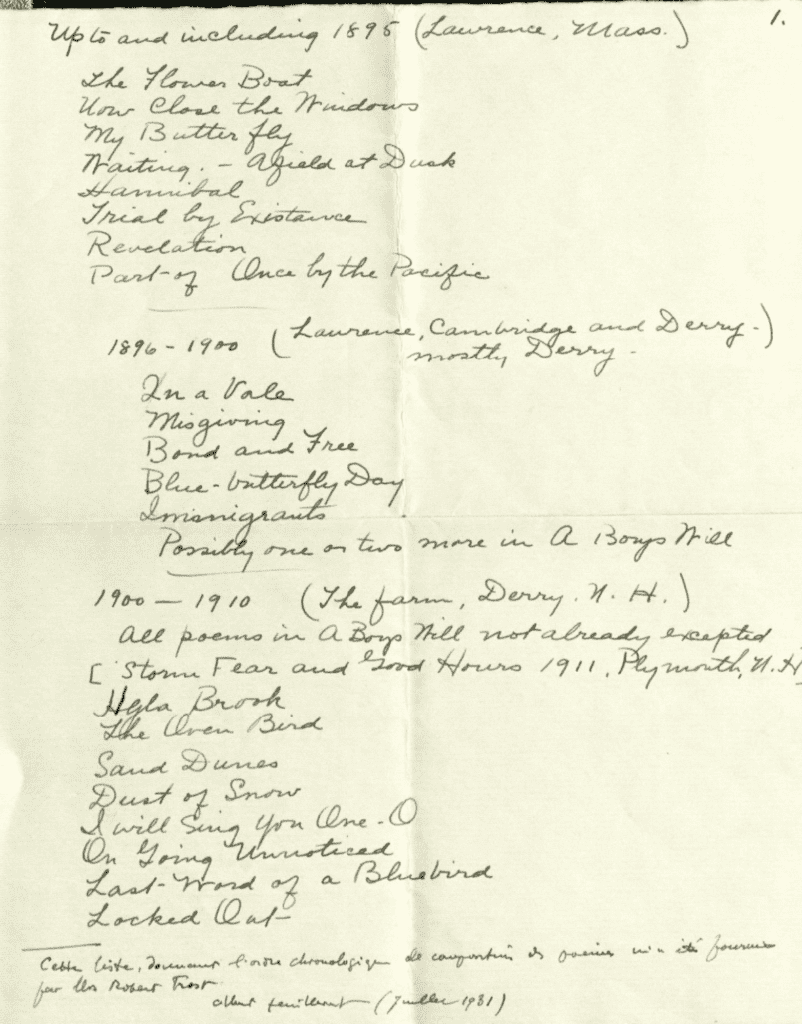 1.
Up to and including 1895 (Lawrence, Mass.)
The Flower Boat
Now Close the Windows
My Butterfly
Waiting. - Afield at Dusk
Hannibal
Trial by Existance
Revelation
Part of Once by the Pacific
1896 - 1900 (Lawrence, Cambridge and Derry -)
mostly Derry -
In a Vale
Misgiving
Bond and Free
Blue-butterfly Day
Immigrants
Possibly one or two more in A Boys Will
1900 - 1910 (The farm, Derry. N. H.)
All poems in A Boys Will not already excepted
[ Storm Fear and Good Hours 1911, Plymouth, N. H
Hyla Brook
The Oven Bird
Sand Dunes
Dust of Snow
I will Sing You One-O
On Going Unnoticed
Last Word of a Bluebird
Locked Out
Cette liste, donnant l'ordre chronologique de composition des poèmes m'a été fournie
par Mrs Robert Frost
Albert Feuillerat (Juillet 1931)